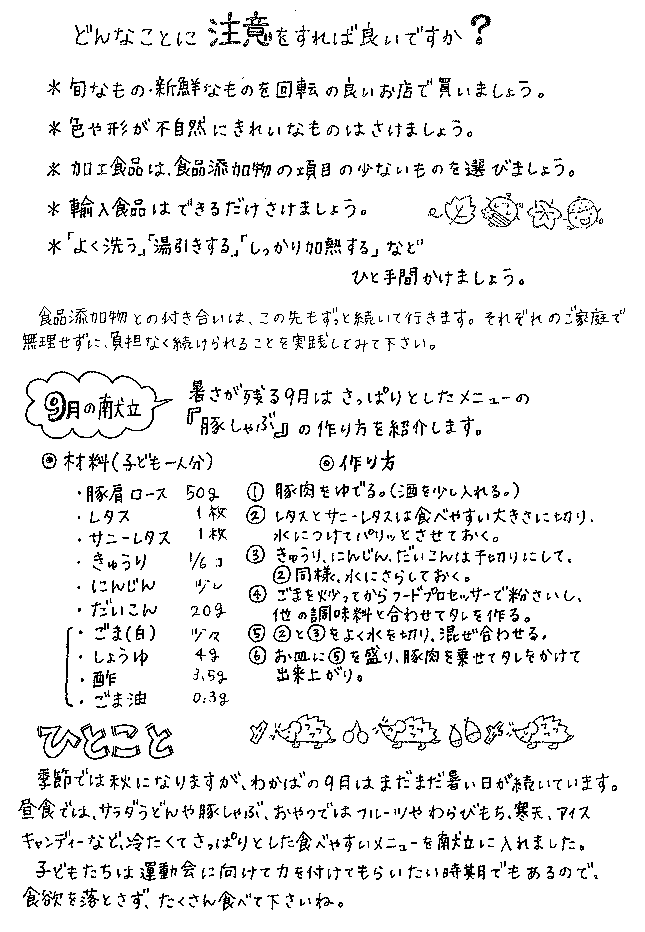 どんなことに注意をすれば良いですか?
*旬なもの・新鮮なものを回転の良いお店で買いましょう。
*色や形が不自然にきれいなものはさけましょう。
*加工食品は、食品添加物の項目の少ないものを選びましょう。
*輸入食品はできるだけさけましょう。
*「よく洗う」「湯引きする」「しっかり加熱する」など
ひと手間かけましょう。
食品添加物との付き合いは、この先もずっと続いて行きます。それぞれのご家庭で
無理せずに、負担なく続けられることを実践してみて下さい。
9月の献立
暑さが残る9月はさっぱりとしたメニューの
『豚しゃぶ』の作り方を紹介します。
◎材料(子ども一人分)
・豚肩ロース 50g
・レタス 1枚
・サニーレタス 1枚
・きゅうり 1/6コ
・にんじん
・だいこん 20g
・ごま(白)
・しょうゆ 4g
・酢 3.5g
・ごま油 0.3g
◎作り方
① 豚肉をゆでる。(酒を少し入れる。)
② レタスとサニーレタスは食べやすい大きさに切り、
水につけてパリッとさせておく。
③ きゅうり、にんじん、だいこんは千切りにして、
②同様、水にさらしておく。
④ ごまを炒ってからフードプロセッサーで粉さいし、
他の調味料と合わせてタレを作る。
⑤ ②と③をよく水を切り、混ぜ合わせる。
⑥ お皿に⑤を盛り、豚肉を乗せてタレをかけて
出来上がり。
ひとこと
季節では秋になりますが、わかばの9月はまだまだ暑い日が続いています。
昼食では、サラダうどんや豚しゃぶ、おやつではフルーツやわらびもち、寒天、アイス
キャンディーなど、冷たくてさっぱりとした食べやすいメニューを献立に入れました。
子どもたちは運動会に向けて力を付けてもらいたい時期でもあるので、
食欲を落とさず、たくさん食べて下さいね。